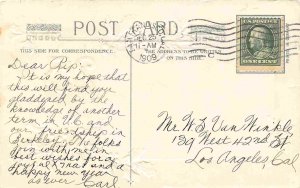 POST CARD
THIS SIDE FOR CORRESPONDENCE.
THE ADDRESS TO BE WRITTEN ON THIS SIDE.
11-AM
1909
ONE CENT
Dear Rip:-
It is my hope that
this will find your
gladdened by the
knowledge of another
term in U.C. and
our friendship in
Berkeley. The folks
join with me in
best wishes for a
joyful Xmas and a
happy new year
as ever Carl
Mr. W. E. Van Winkle
139 West 42nd St
Los Angeles Cal